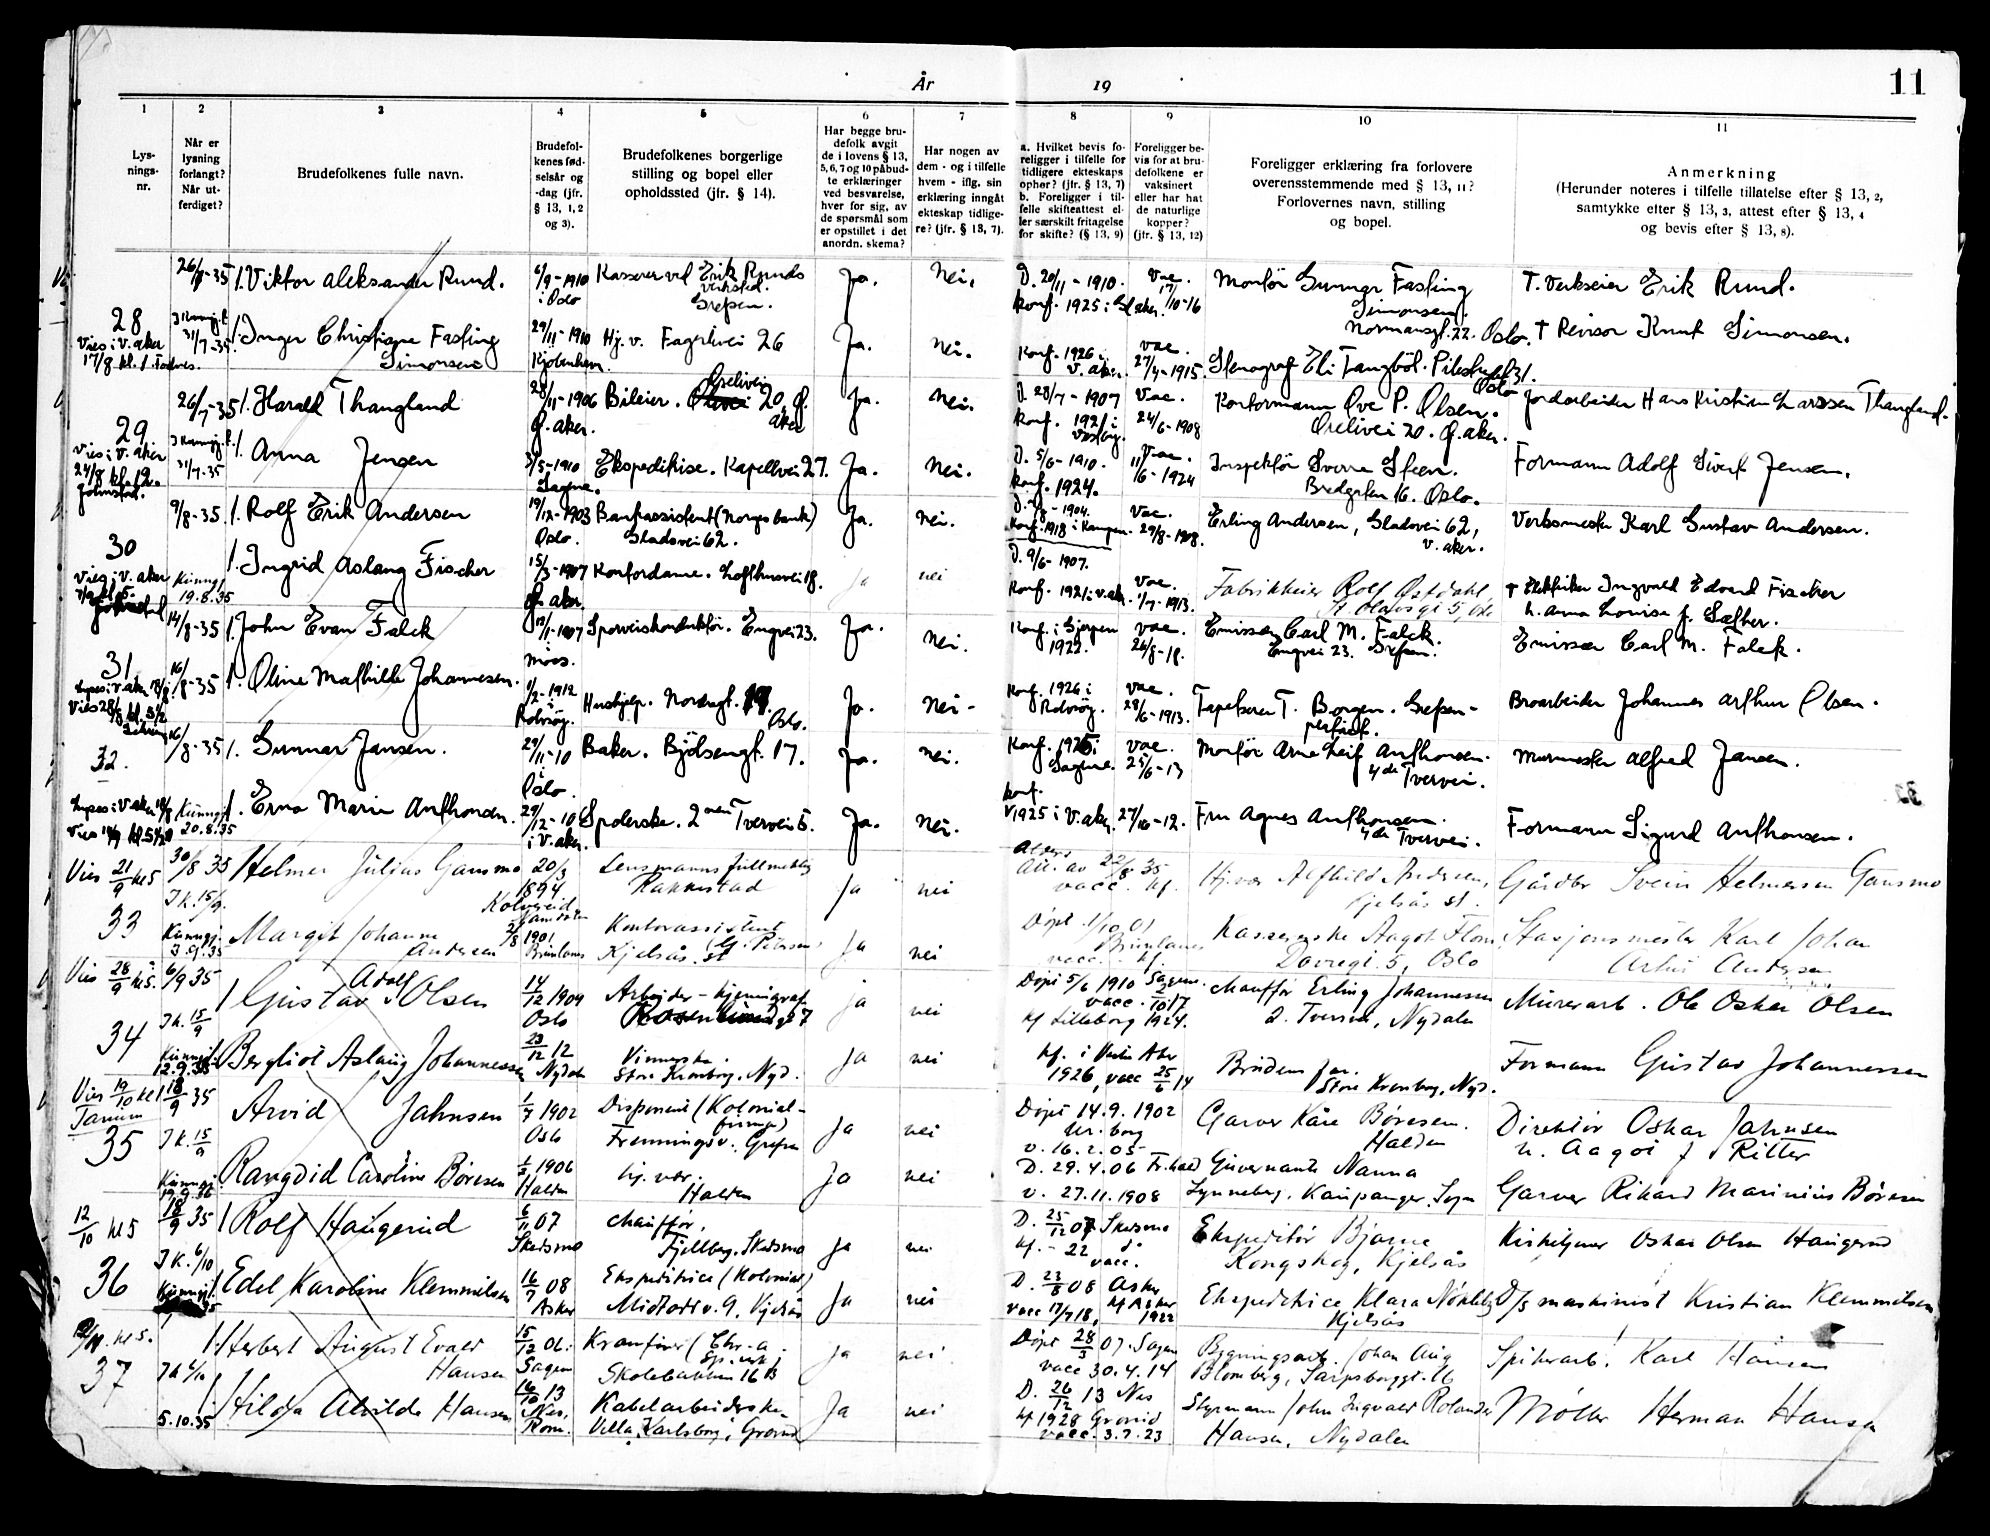 11
År 19
1 2 3 4 5 6 7 8 9 10 11
Lys-
nings-
nr.
Når er
lysning
forlangt?
Når ut-
ferdiget?
Brudefolkenes fulle navn.
Brudefol-
kenes fød-
selsår og
-dag (jfr.
§ 13, 1, 2
og 3).
Brudefolkenes borgerlige
stilling og bopel eller
opholdssted (jfr. § 14).
Har begge bru-
defolk avgit
de i lovens § 13,
5, 6, 7 og 10 påbud-
te erklæringer
ved besvarelse,
hver for sig, av
de spørsmål som
er opstillet i det
anordn. skema?
Har nogen av
dem - og i tilfelle
hvem - iflg. sin
erklæring inngått
ekteskap tidlige-
re? (jfr. § 13, 7).
a. Hvilket bevis fo-
religger i tilfelle for
tidligere ekteskaps
ophør? (jfr. § 13, 7)
b. Foreligger i til-
felle skifteattest el-
ler særskilt fritagelse
for skifte? (§ 13, 9)
Foreligger be-
vis for at bru-
defolkene er
vaksinert
eller har hat
de naturlige
kopper?
(jfr. § 13, 12)
Foreligger erklæring fra forlovere
overensstemmende med § 13, 11?
Forlovernes navn, stilling
og bopel.
Anmerkning
(Herunder noteres i tilfelle tillatelse efter § 13, 2,
samtykke efter § 13, 3, attest efter § 13, 4
og bevis efter § 13, 8).
28
Vies i V. aker
17/8 kl. 1.
31/7-35
/. Viktor Aleksander Rund.
6/9-1910
i Oslo
Kasserer ved Erik Runds
verksted.
Grefsen.
Ja. Nei.
D. 20/11-1910.
Konf. 1925 i
vac.
17/10-16
Montør Gunnar Fasting
Simonsen
Normannsgt. 22. Oslo.
† Verkseier Erik Rund.
/. Inger Christiane Fasting
Simonsen
29/11-1910
Kjøbenhavn.
Hj. v. Fagerlivei 26
Ja. Nei.
Konf. 1926 i
V. aker.
vac.
27/4-1915.
Stenograf Eli Tangbøl.
Oslo
† Revisor Knut Simonsen.
29
Vies i V. aker
24/8 kl. 12.
26/7-35
31/7-35
/. Harald Thangland
28/11-1906
Ø. aker.
Bileier. Ørelivei 20. Ø.
aker
Ja. Nei.
D. 28/7-1907
Konf. 1921 i
vac.
24/6-1908
Kontormann Ove P. Olsen.
Ørelivei 20. Ø. aker.
Jordarbeider Hans Kristian Larssen Thangland.
/. Anna Jensen
3/5-1910
Sagene.
Ekspeditrise. Kapellvei 27.
Ja. Nei.
D. 5/6-1910.
Konf. 1924.
vac.
11/6-1924
Inspektør Sverre Steen.
Bredgaten 16. Oslo.
Formann Adolf Sivert Jensen.
30
Vies i V. aker
9/8-35
Kunngj.
19.8.35
/. Rolf Erik Andersen
19/12-1903
Oslo.
Bankassistent (Norges bank)
Gladsvei 62.
Ja. Nei.
vac.
29/8-1908.
Erling Andersen, Gladsvei 62,
V. aker.
Verksmester Karl Gustav Andersen.
/. Ingrid Aslaug Fischer
15/3-1907
Ø. aker.
Kontordame. Lofthusvei 18.
Ja nei
D. 9/6-1907.
Konf. 1921 i V. aker.
vac.
1/7-1913.
Fabrikkeier Rolf Østdahl,
St. Olavsgt 5, Oslo
† Elektriker Ingvald Edvard Fischer
h. Anna Lovise f. Sæther.
31
14/8-35
16/8-35
/. John Evan Falck
Moss.
Sporveiskonduktør. Engvei 23.
Ja. Nei.
Konf. i Gjerpen
1922.
vac.
26/8-18.
Emissær Carl M. Falck.
Engvei 23. Grefsen.
Emissær Carl M. Falck.
/. Oline Mathilde Johannesen.
1/2-1912
i
Rolvsøy.
Hushjelp. Nordregt. 17.
Oslo.
Ja. Nei.
Konf. 1926 i
Rolvsøy.
vac.
28/6-1913.
Tapetserer T. Borgen. Grefsen-
platået.
Broarbeider Johannes Arthur Olsen.
32.
16/8-35
Kunngj.
20.8.35
/. Gunnar Jansen.
29/11-10
i
Oslo.
Baker. Bjølsengt. 17.
Ja. Nei.
Konf. 1925 i
Sagene.
vac.
25/6-13
Montør Arne Leif Anthonsen.
4de Tvervei.
Murmester Alfred Jansen.
/. Erna Marie Anthonsen.
29/12-10
i V. aker.
Spolerske. 2nen Tvervei 5.
Ja. Nei.
Konf.
1925 i V. aker.
27/10-12.
Fru Agnes Anthonsen.
4de Tvervei.
Formann Sigurd Anthonsen.
Vies 21/9 kl 5
33
30/8 35
Kunngj.
3.9.35
Helmer Julius Gansmo
20/3
1894
Kolvereid
Namdalen
Lensmannsfullmektig
Rakkestad
Ja nei
vacc. kf.
Hj.vær. Alfhild Andersen,
Kjelsås st.
Gårdbr Svein Helmersen Gansmo
Margit Johanne
Andersen
2/8 1901
Kontorassistent
Kjelsås st
Ja nei
Døpt 1/10 01
vacc. kf.
Kassererske Aagot Flom,
Dovregt. 5, Oslo
Stasjonsmester Karl Johan
Artur Andersen
Vies 28/9 kl 5.
34
6/9 35
I k. 15/9
Kunngj.
12.9.35
/ Gustav Adolf Olsen
14/12 1909
Oslo
Arbeider -
Ja nei
Døpt 5/6 1910 Sagene
vacc. 2/10 17
kf Lilleborg 1924.
Chauffør Erling Johannessen
2. Tverrvei, Nydalen
Murerarb. Ole Oskar Olsen
Bergliot Aslaug Johannessen
23/12 12
Nydalen
Vinnerske.
Store Kronborg. Nyd.
Ja nei
kf. i Vestre Aker
1926, vacc 25/6 14
Brudens far.
Store Kronborg, Nyd.
Formann Gustav Johannessen
Vies 19/10 kl 1
Tanum
35
18/9 35
I k. 15/9
Kunngj.
Arvid Jahnsen
1/7 1902
Oslo
Disponent (Kolonial-
firma)
Frenningsv. Grefsen
Ja nei
Døpt 14.9.1902
Ur. borg
v. 16.2.05
Garver Kåre Børesen.
Halden
Direktør Oskar Jahnsen
h. Aagot f Ritter
Rangdid Caroline Børesen
1906
Halden
hj. vær.
Halden
Ja nei
D. 29.4.06 Fr.hald
v. 27.11.1908
Guvernante Nanna
Lynneberg, Kaupanger, Sogn
Garver Rikard Marinius Børesen
12/10 kl 5
36
18/9 35
I k. 6/10
Kunngj.
/ Rolf Haugerud
6/11 07
Skedsmo
Chauffør.
Fjellberg. Skedsmo
Ja nei
D. 25/12 07 Skedsmo
kf. - 22 d.
vacc.
Ekspeditør Bjarne
Kongshaug, Kjelsås
Kirketjener Oskar Olsen Haugerud
Edel Karoline Klemmetsen
16/7 08
Asker
Ekspeditrice (Kolonial)
Midtoddv. 9, Kjelsås
Ja nei
D. 23/8 08 Asker
vacc 17/7 18, kf Asker
1922
Ekspeditrice Klara Nøkleby
Kjelsås
D/s maskinist Kristian Klemmetsen
kl 5.
37
5.10.35
/. Herbert August Evald
Hansen
15/12 06.
Sagene
Kranfører (Chr-a
Sp. verk)
Skolebakken 16 B
Ja nei.
Døpt 28/3 07. Sagene
vacc 30.4.14
Bygningsarb. Johan Aug
Blomberg, Sarpsborggt. 16
Spikerarb. Karl Hansen
/. Hilda Alvilde Hansen
16/10 13
Nes,
Rom.
Kabelarbeiderske.
Villa Karlsborg, Grorud
Ja nei
D. 26/12 13 Nes
kf 1928 Grorud
vacc. 3.7.23
Styrmann John Ingvald Rolander
Hansen, Nydalen
Møller Herman Hansen